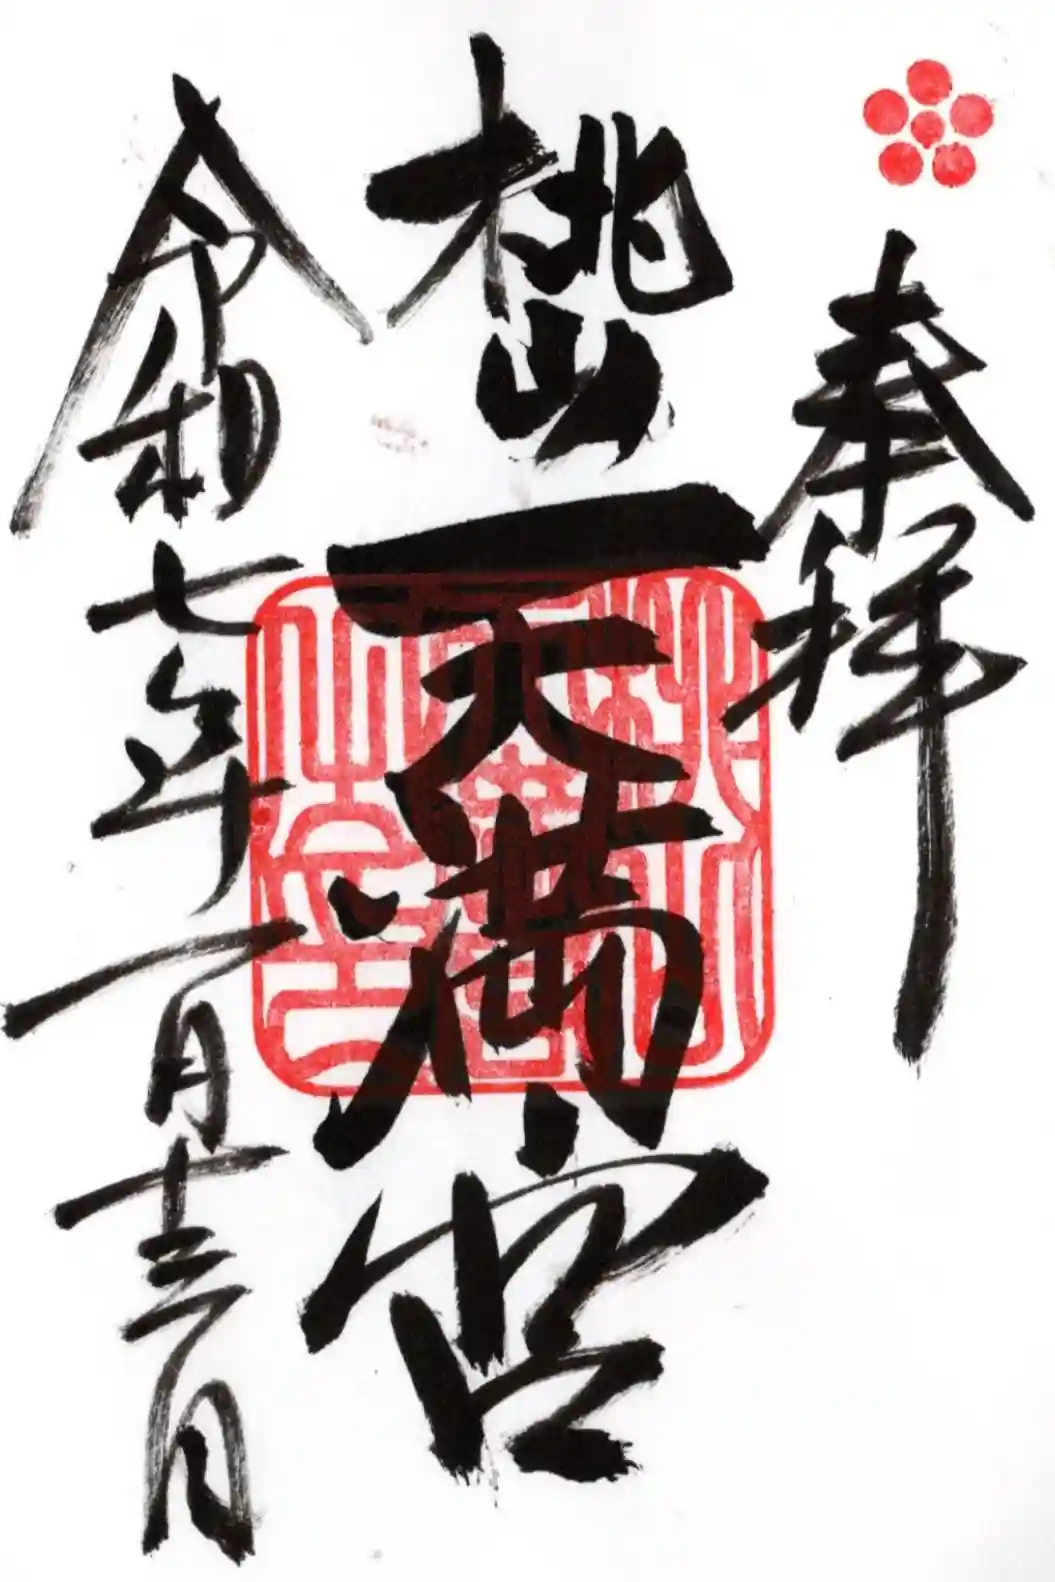 奉拝
桃山天満宮
令和七年一月十三日